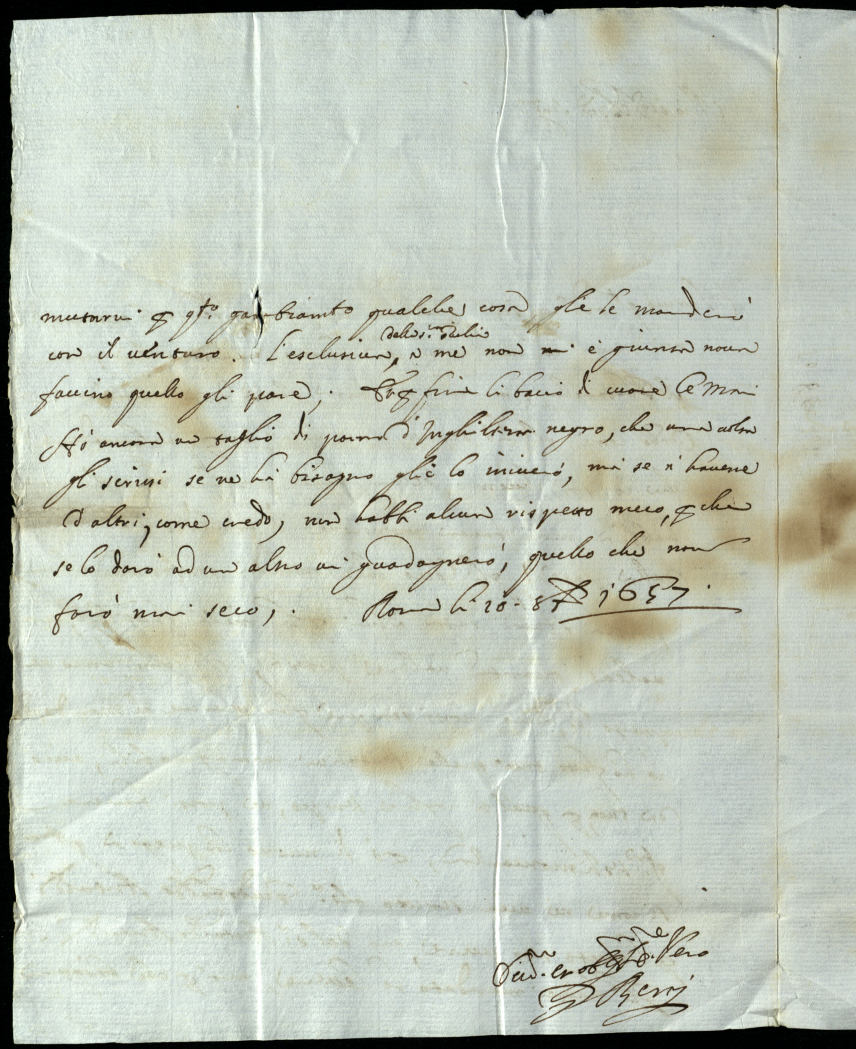 mutarvi p q.to gambiamto qualche cosa gle le manderò
con il venturo. l'esclusiva, à me non mi è giunta nova
faccino quello gli pare; In fine li bacio di cuore le mani
Hò ancora un taglio di panno d'Inghilterra negro, che una volta
gli scrissi se ne hà bisogno glie lo inviero, mà se n'havesse
d'altri, come credo, non habbi alcun rispetto meco, p che
se lo darò ad un altro vi guadagnerò, quello che non
farò mai seco,. Roma li 20 - 1657.
Vero